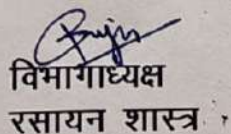 विभागाध्यक्ष
रसायन शास्त्र